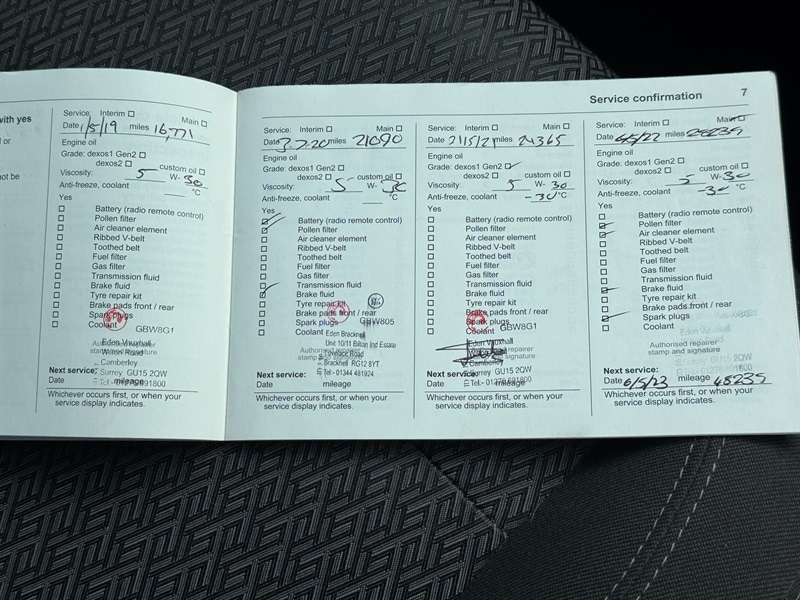 with yes
l or
not be
Service: Interim ☐
Main ☐
Date 1/5/19 miles 16,771
Engine oil
Grade: dexos1 Gen2 ☐
dexos2 ☐ custom oil ☐
Viscosity: 5 W- 30
Anti-freeze, coolant °C
Yes
☐ Battery (radio remote control)
☐ Pollen filter
☐ Air cleaner element
☐ Ribbed V-belt
☐ Toothed belt
☐ Fuel filter
☐ Gas filter
☐ Transmission fluid
☐ Brake fluid
☐ Tyre repair kit
☐ Brake pads front / rear
☐ Spark plugs
☐ Coolant
GBW8G1
Eden Vauxhall
Authorised repairer
stamp and signature
Camberley
Surrey GU15 2QW
Next service:
Date mileage
Whichever occurs first, or when your
service display indicates.
Service confirmation 7
Service: Interim ☐
Main ☐
Date 3.7.20 miles 21090
Engine oil
Grade: dexos1 Gen2 ☐
dexos2 ☐ custom oil ☐
Viscosity: 5 W- 30
Anti-freeze, coolant °C
Yes
Battery (radio remote control)
Pollen filter
Air cleaner element
Ribbed V-belt
Toothed belt
Fuel filter
Gas filter
Transmission fluid
Brake fluid
Tyre repair kit
Brake pads front / rear
Spark plugs
Coolant
GBW805
Eden Bracknell
Unit 10/11 Bilton Ind Estate
Authorised repairer
stamp and signature
Lovelace Road
Bracknell RG12 8YT
Tel: - 01344 481924
Next service:
Date mileage
Whichever occurs first, or when your
service display indicates.
Service: Interim ☐
Main ☐
Date 21/5/21 miles 24365
Engine oil
Grade: dexos1 Gen2 ☑
dexos2 ☐ custom oil ☐
Viscosity: 5 W- 30
Anti-freeze, coolant °C
Yes
☐ Battery (radio remote control)
☐ Pollen filter
☐ Air cleaner element
☐ Ribbed V-belt
☐ Toothed belt
☐ Fuel filter
☐ Gas filter
☐ Transmission fluid
☐ Brake fluid
☐ Tyre repair kit
☐ Brake pads front / rear
☐ Spark plugs
☐ Coolant
GBW8G1
Eden Vauxhall
Authorised repairer
stamp and signature
Camberley
Surrey GU15 2QW
Next service:
Date mileage
Whichever occurs first, or when your
service display indicates.
Service: Interim ☐
Main ☑
Date 6/5/22 miles 28239
Engine oil
Grade: dexos1 Gen2 ☐
dexos2 ☐ custom oil ☐
Viscosity: 5 W- 30
Anti-freeze, coolant -30 °C
Yes
☐ Battery (radio remote control)
☑ Pollen filter
☑ Air cleaner element
☐ Ribbed V-belt
☐ Toothed belt
☐ Fuel filter
☐ Gas filter
☐ Transmission fluid
☑ Brake fluid
☐ Tyre repair kit
☐ Brake pads front / rear
☑ Spark plugs
☐ Coolant
Eden Vauxhall
Authorised repairer
stamp and signature
Next service:
Date 6/5/23 mileage 48239
Whichever occurs first, or when your
service display indicates.